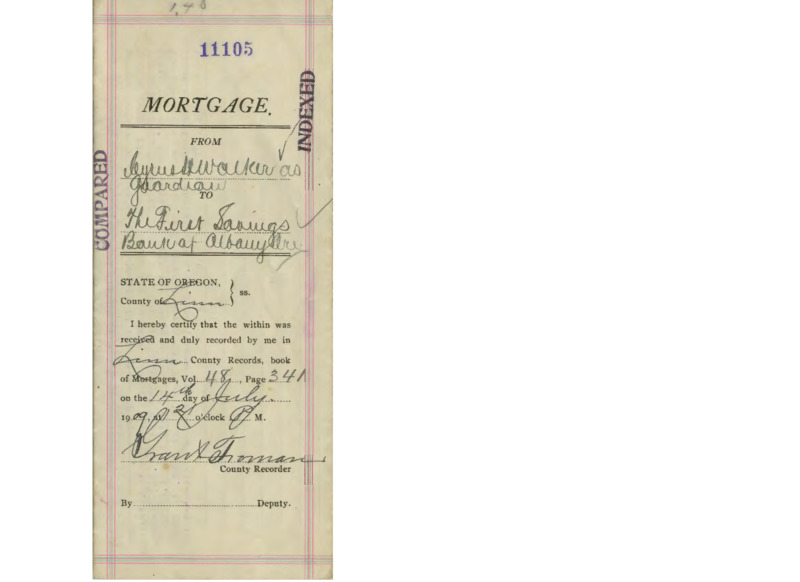 1.40
11105
MORTGAGE.
INDEXED
FROM
Cyrus H Walker as
guardian
TO
COMPARED
The First Savings
Bank of Albany Ore
STATE OF OREGON,
ss.
County of Linn
I hereby certify that the within was
received and duly recorded by me in
Linn County Records, book
of Mortgages, Vol. 48, Page 341
on the 14th day of July
1909, at o'clock P. M.
Grant Froman
County Recorder
By Deputy.